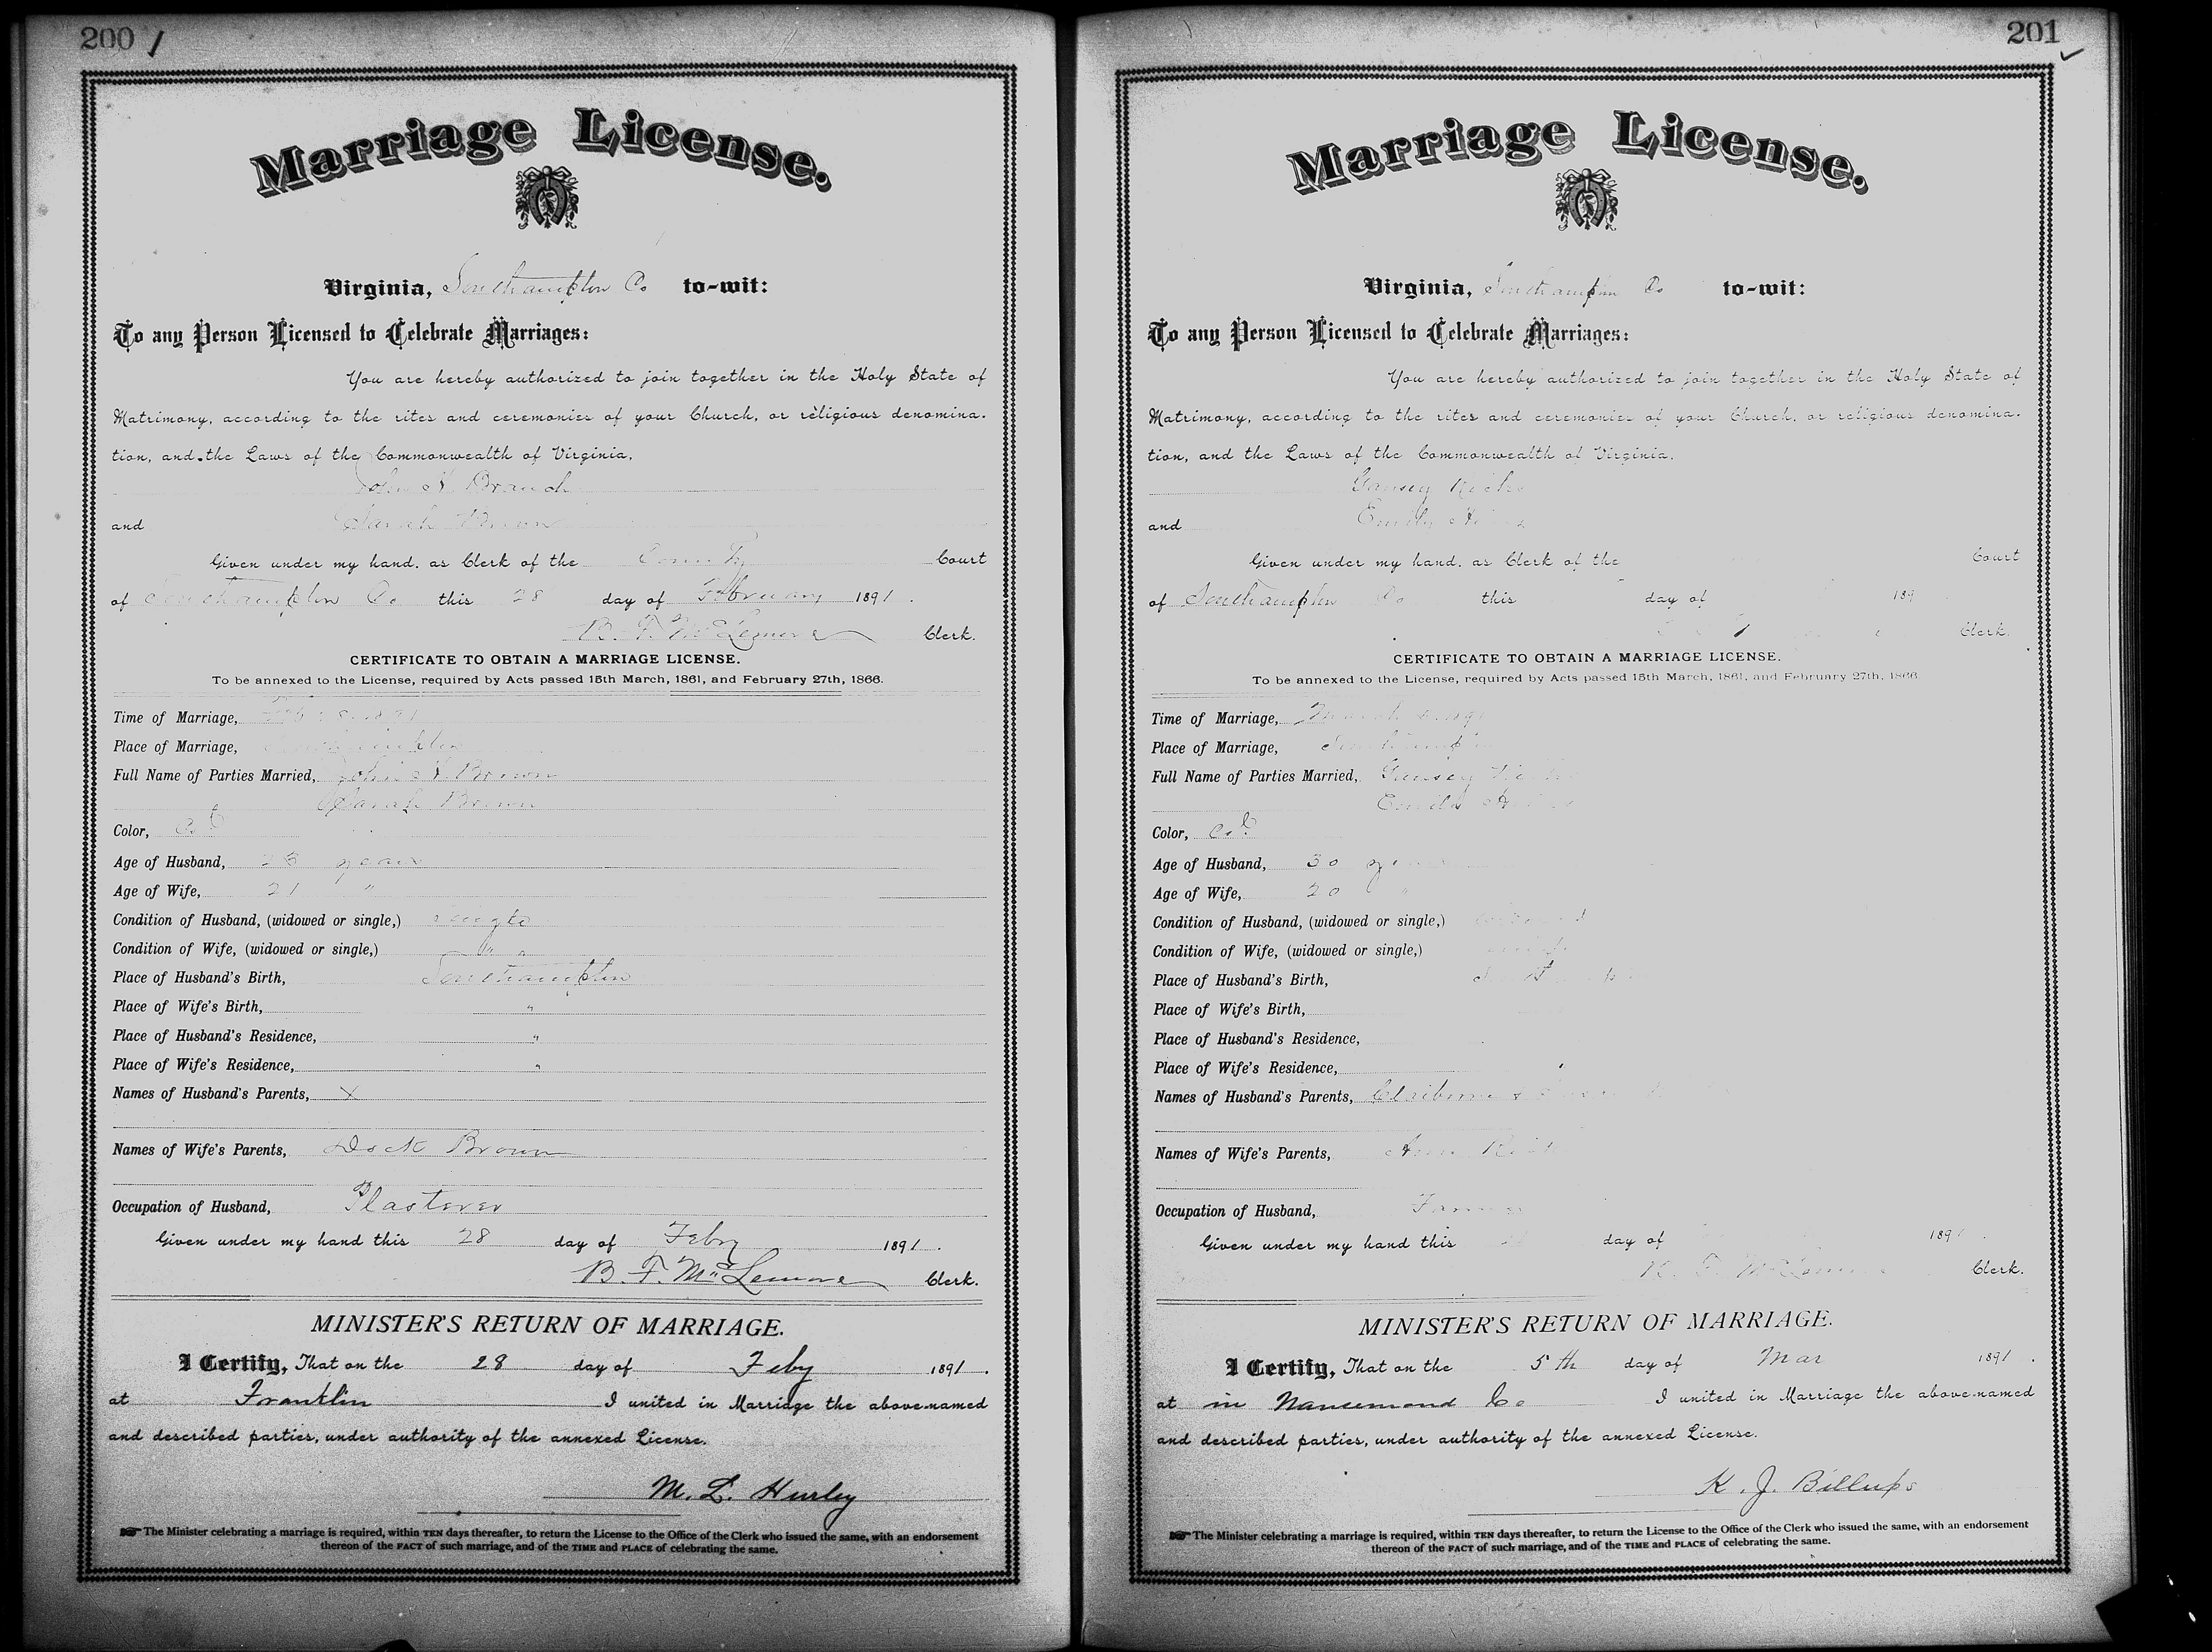 200
Marriage License.
Virginia, Southampton Co to-wit:
To any Person Licensed to Celebrate Marriages:
You are hereby authorized to join together in the Holy State of
Matrimony, according to the rites and ceremonies of your Church, or religious denomina-
tion, and the Laws of the Commonwealth of Virginia.
John Branch
and Sarah Brown
Given under my hand, as Clerk of the County Court
of Southampton Co this 28 day of February 1891.
B. F. McLemore Clerk.
CERTIFICATE TO OBTAIN A MARRIAGE LICENSE.
To be annexed to the License, required by Acts passed 15th March, 1861, and February 27th, 1866.
Time of Marriage, Feb 28, 1891
Place of Marriage, Southampton
Full Name of Parties Married, John Brown
Sarah Brown
Color, Col
Age of Husband, 23 years
Age of Wife, 21 "
Condition of Husband, (widowed or single,) single
Condition of Wife, (widowed or single,) "
Place of Husband's Birth, Southampton
Place of Wife's Birth, "
Place of Husband's Residence, "
Place of Wife's Residence, "
Names of Husband's Parents, X
Names of Wife's Parents, Dock Brown
Occupation of Husband, Plasterer
Given under my hand this 28 day of Feby 1891.
B. F. McLemore Clerk.
MINISTER'S RETURN OF MARRIAGE.
I Certify, That on the 28 day of Feby 1891.
at Franklin I united in Marriage the above-named
and described parties, under authority of the annexed License.
M. L. Hurley
The Minister celebrating a marriage is required, within TEN days thereafter, to return the License to the Office of the Clerk who issued the same, with an endorsement
thereon of the FACT of such marriage, and of the TIME and PLACE of celebrating the same.
201
Marriage License.
Virginia, Southampton Co to-wit:
To any Person Licensed to Celebrate Marriages:
You are hereby authorized to join together in the Holy State of
Matrimony, according to the rites and ceremonies of your Church, or religious denomina-
tion, and the Laws of the Commonwealth of Virginia.
and Emily
Given under my hand, as Clerk of the Court
of Southampton Co this day of 189
Clerk.
CERTIFICATE TO OBTAIN A MARRIAGE LICENSE.
To be annexed to the License, required by Acts passed 15th March, 1861, and February 27th, 1866.
Time of Marriage, March
Place of Marriage, Southampton
Full Name of Parties Married,
Color, Col
Age of Husband, 30 years
Age of Wife, 20 "
Condition of Husband, (widowed or single,) widowed
Condition of Wife, (widowed or single,) single
Place of Husband's Birth, Southampton
Place of Wife's Birth,
Place of Husband's Residence,
Place of Wife's Residence,
Names of Husband's Parents, Claiborne &
Names of Wife's Parents, Ann
Occupation of Husband, Farmer
Given under my hand this day of 1891.
B. F. McLemore Clerk.
MINISTER'S RETURN OF MARRIAGE.
I Certify, That on the 5th day of Mar 1891.
at in Nansemond Co I united in Marriage the above-named
and described parties, under authority of the annexed License.
K. J. Billups
The Minister celebrating a marriage is required, within TEN days thereafter, to return the License to the Office of the Clerk who issued the same, with an endorsement
thereon of the FACT of such marriage, and of the TIME and PLACE of celebrating the same.